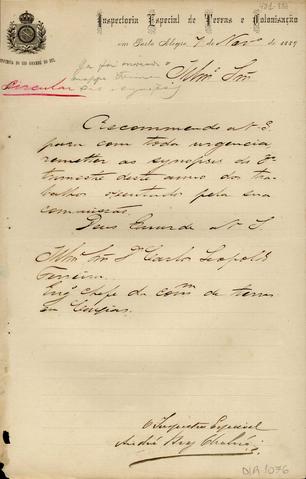 Inspectoria Especial de Terras e Colonisação
em Porto Alegre, 7 de Nov.º de 1889
PROVINCIA DO RIO GRANDE DO SUL
Já foi enviado
Circular
Illmº Snr.
Recommendo a V. S.
para com toda urgencia,
remetter as synopses do 3º
trimestre deste anno dos tra-
balhos executados pela sua
commissão.
Deus Guarde a V. S.
Illmº Snr. Dr. Carlos Leopoldo
Ferreira
Engº Chefe da comm. de terras
em Caxias.
O Inspector Especial
DIA 1076